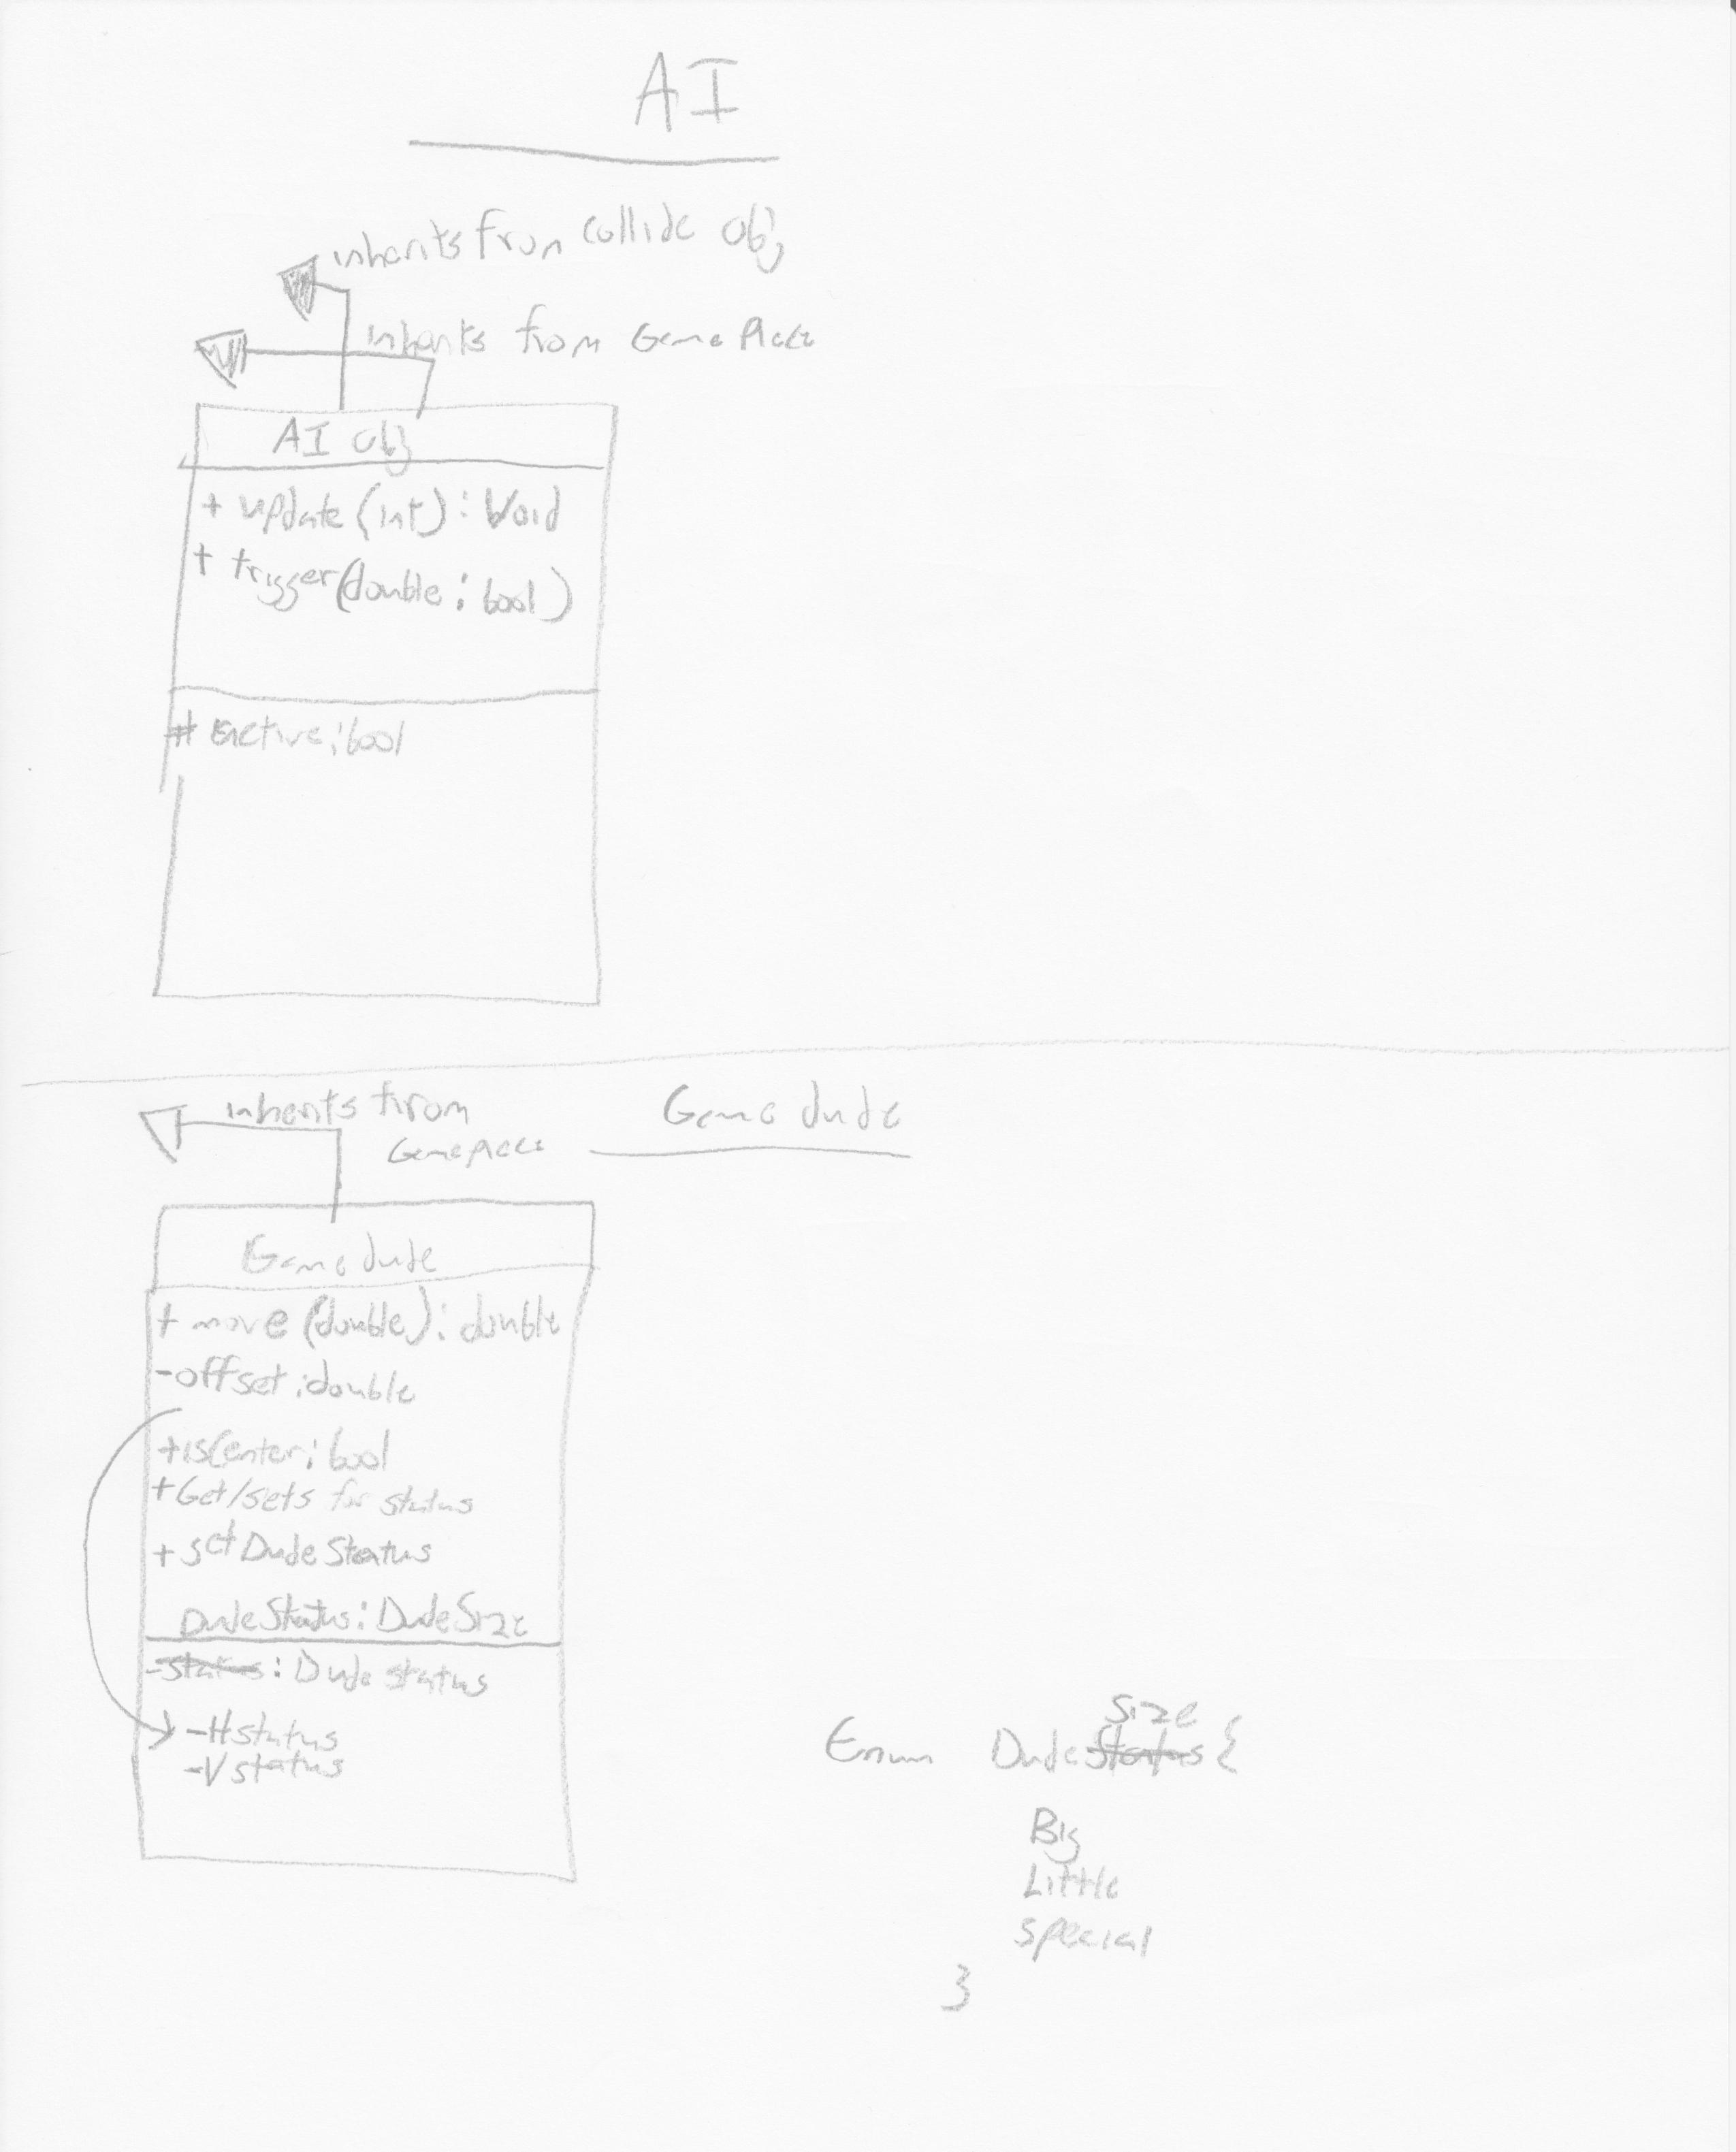 AI
inherits from collide obj
inherits from Game Piece
AI obj
+ update (int) : void
+ trigger (double : bool)
# active : bool
inherits from
Game piece
Game dude
Game dude
+ move (double) : double
- offset : double
+ isCenter : bool
+ Get/sets for status
+ set Dude Status
DudeStatus : DudeSize
- status : Dude status
- H status
- V status
size
Enum Dude status {
Big
Little
special
}